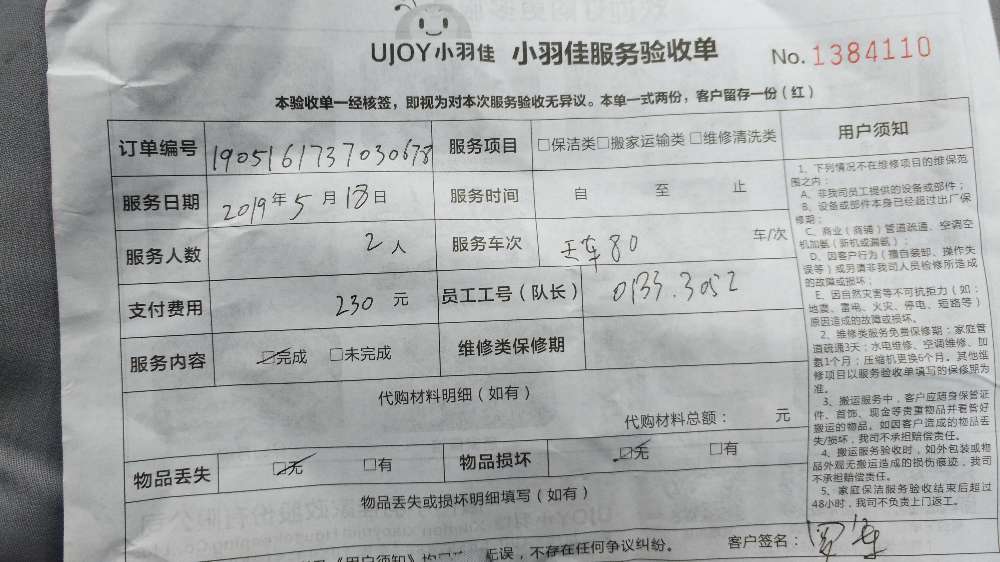 UJOY小羽佳 小羽佳服务验收单 No. 1384110
本验收单一经核签，即视为对本次服务验收无异议。本单一式两份，客户留存一份（红）
订单编号 190516173703067８ 服务项目 □保洁类□搬家运输类 □维修清洗类
服务日期 2019年 5 月 18 日 服务时间 自 至 止
服务人数 2 人 服务车次 80 车/次
支付费用 230 元 员工工号（队长） 0133.3052
服务内容 ☑完成 □未完成 维修类保修期
代购材料明细（如有）
代购材料总额： 元
物品丢失 ☑无 □有 物品损坏 ☑无 □有
物品丢失或损坏明细填写（如有）
《用户须知》 无误，不存在任何争议纠纷。 客户签名：
用户须知
1、下列情况不在维修项目的维保范
围之内：
A、非我司员工提供的设备或部件；
B、设备或部件本身已经超过出厂保
修期；
C、商业（商铺）管道疏通、空调空
机加氨（新机或漏氨）；
D、因客户行为（擅自装卸、操作失
误等）或另请非我司人员检修所造成
的故障或损坏；
E、因自然灾害等不可抗拒力（如：
地震、雷电、火灾、停电、短路等）
原因造成的故障或损坏。
2、维修类服务免售保修期：家庭管
道疏通3天；水电维修、空调维修、加
氨1个月；压缩机更换6个月。其他维
修项目以服务验收单填写的保修期为
准。
3、搬运服务中，客户应随身保管证
件、首饰、现金等贵重物品并看管好
搬运的物品。如因客户造成的物品丢
失/损坏，我司不承担赔偿责任。
4、搬运服务验收时，如外包装或物
品外观无搬运造成的损伤痕迹，我司
不承担赔偿责任。
5、家庭保洁服务验收结束后超过
48小时，我司不负责上门返工。